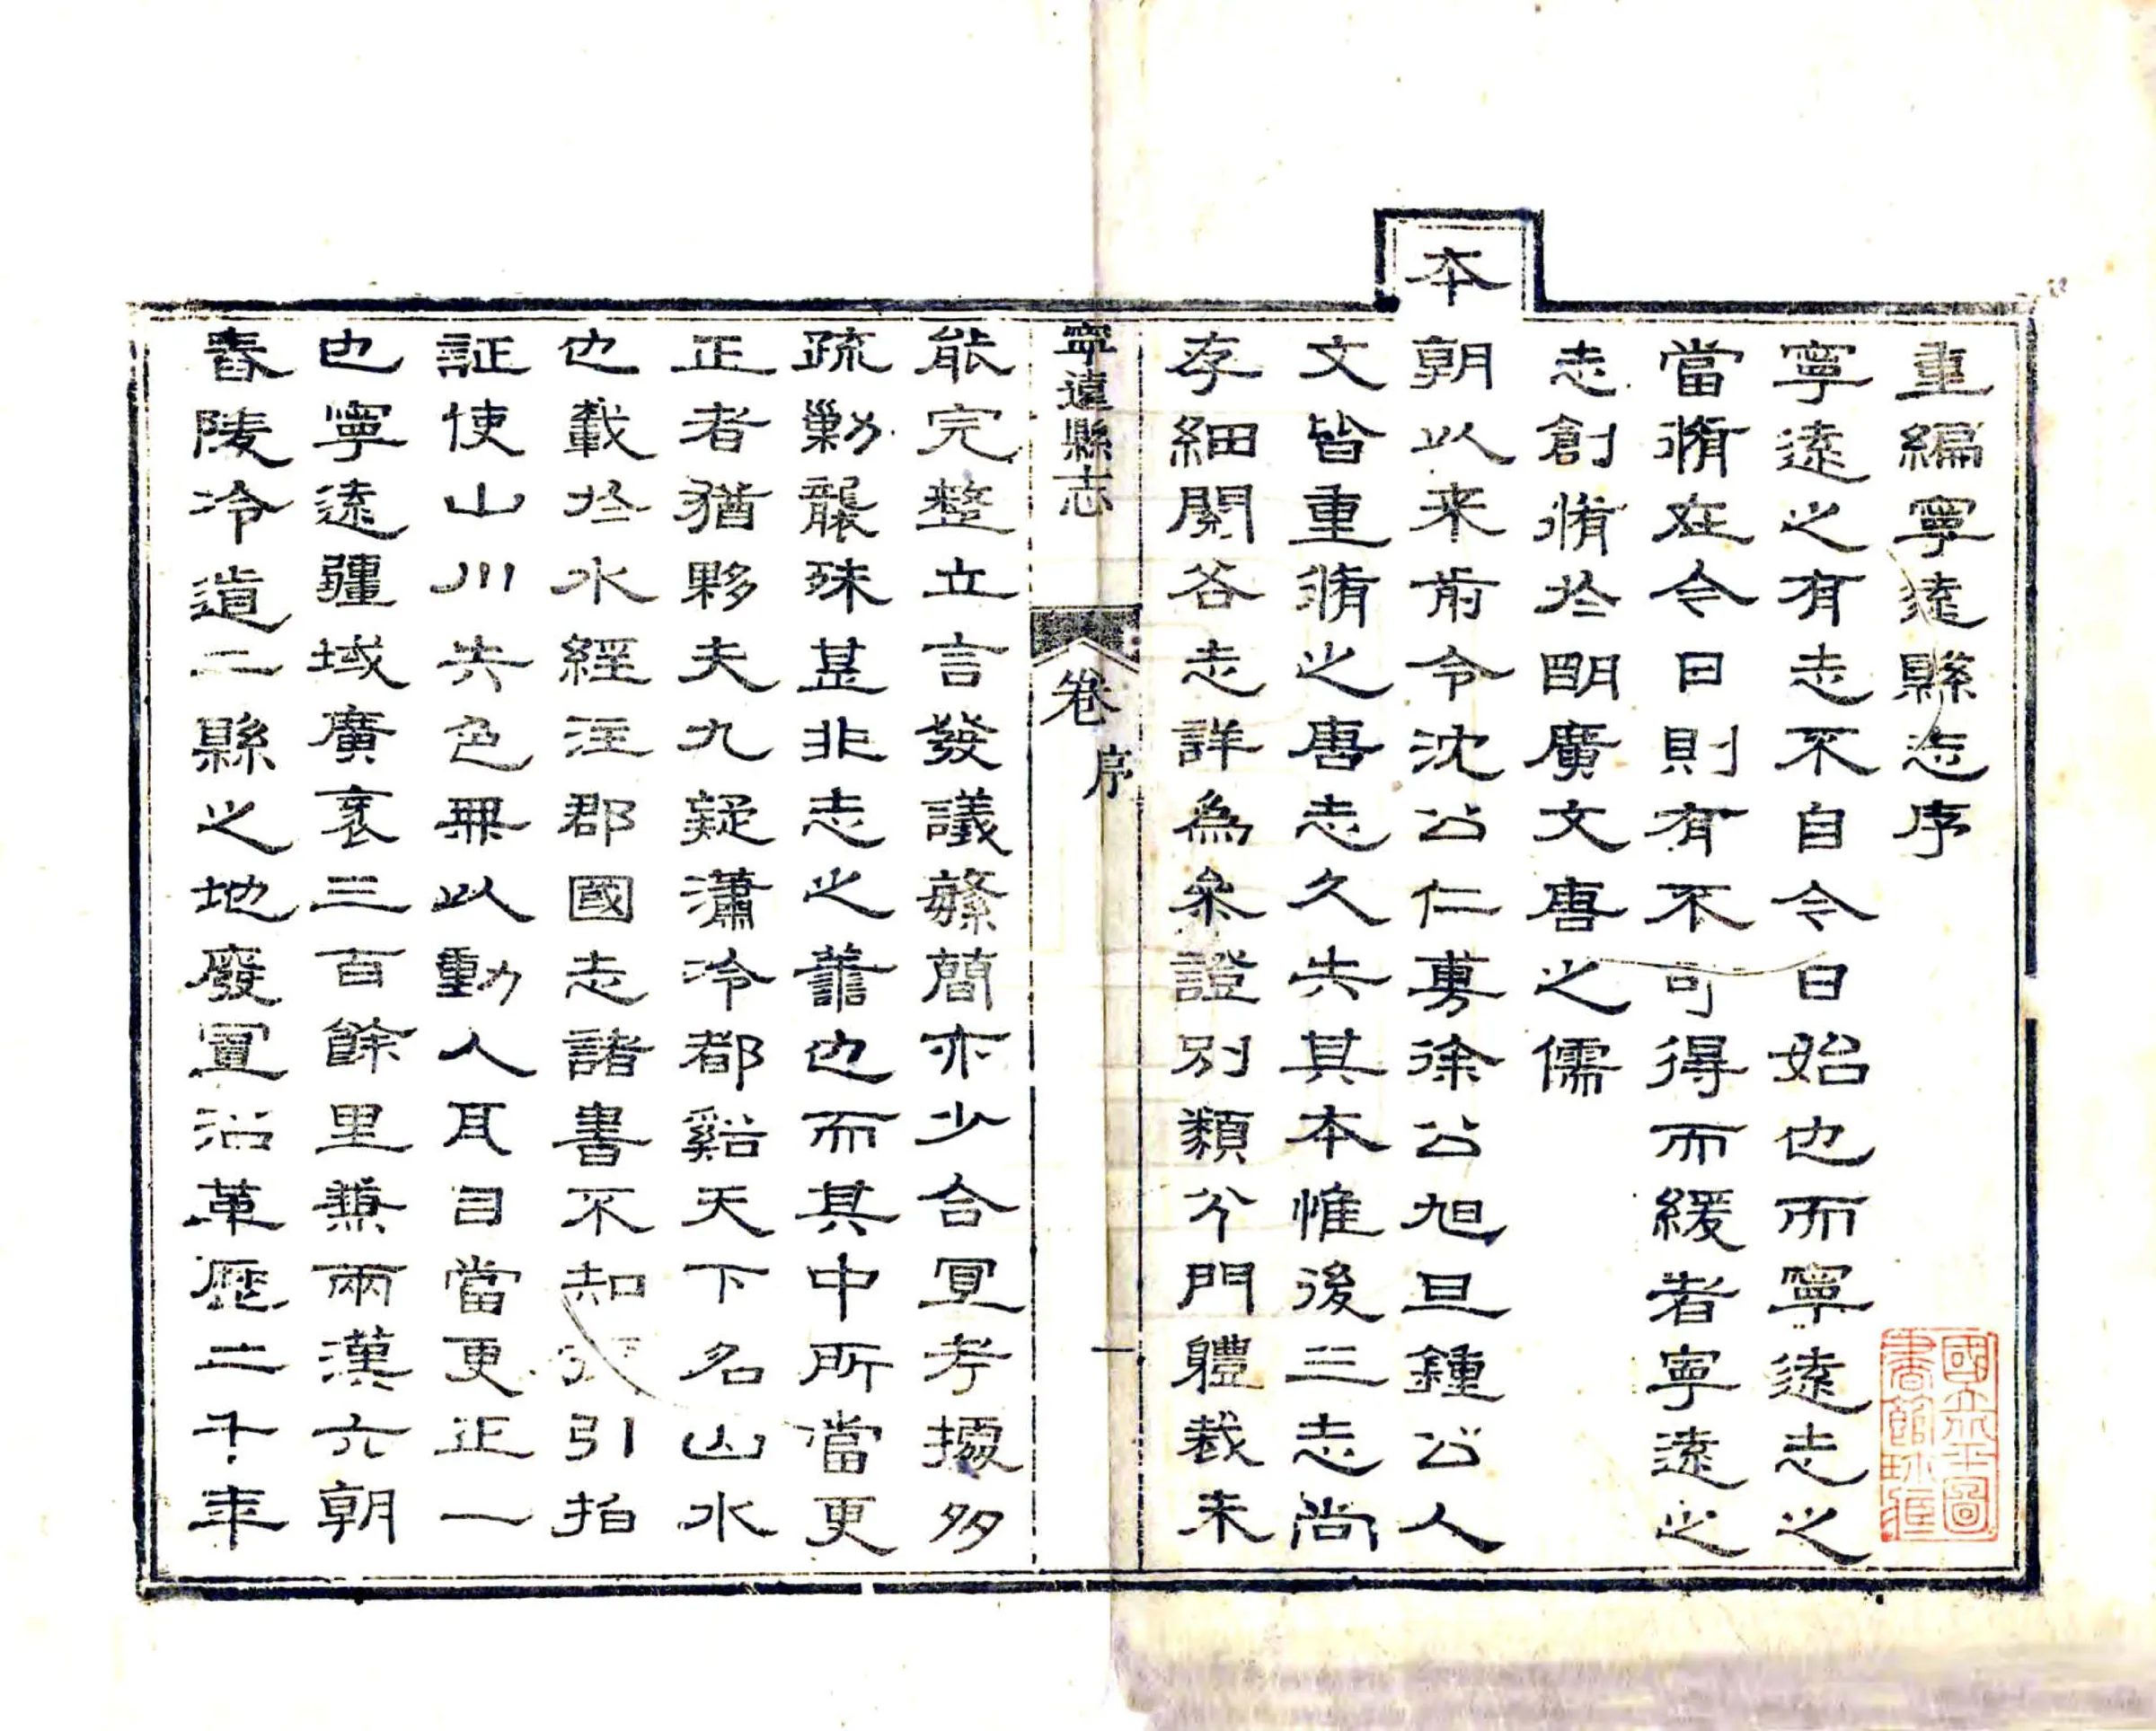 重編寧遠縣志序
寧遠之有志不自今日始也而寧遠志之
當脩在今日則有不可得而緩者寧遠之
志創脩於明廣文唐之儒
本朝以来前令沈公仁旉徐公旭旦鍾公人
文皆重脩之唐志久失其本惟後三志尚
存細閱各志詳為叅證別類分門體裁未
寧遠縣志 卷 序 一
能完整立言發議繁簡亦少合宜考據多
疏勦襲殊甚非志之舊也而其中所當更
正者猶夥夫九疑瀟泠都谿天下名山水
也載於水經注郡國志諸書不知引拍
証使山川失色無以動人耳目當更正一
也寧遠疆域廣袤三百餘里兼兩漢六朝
舂陵泠道二縣之地廢置沿革歷二千年
國立北平圖書館珍藏